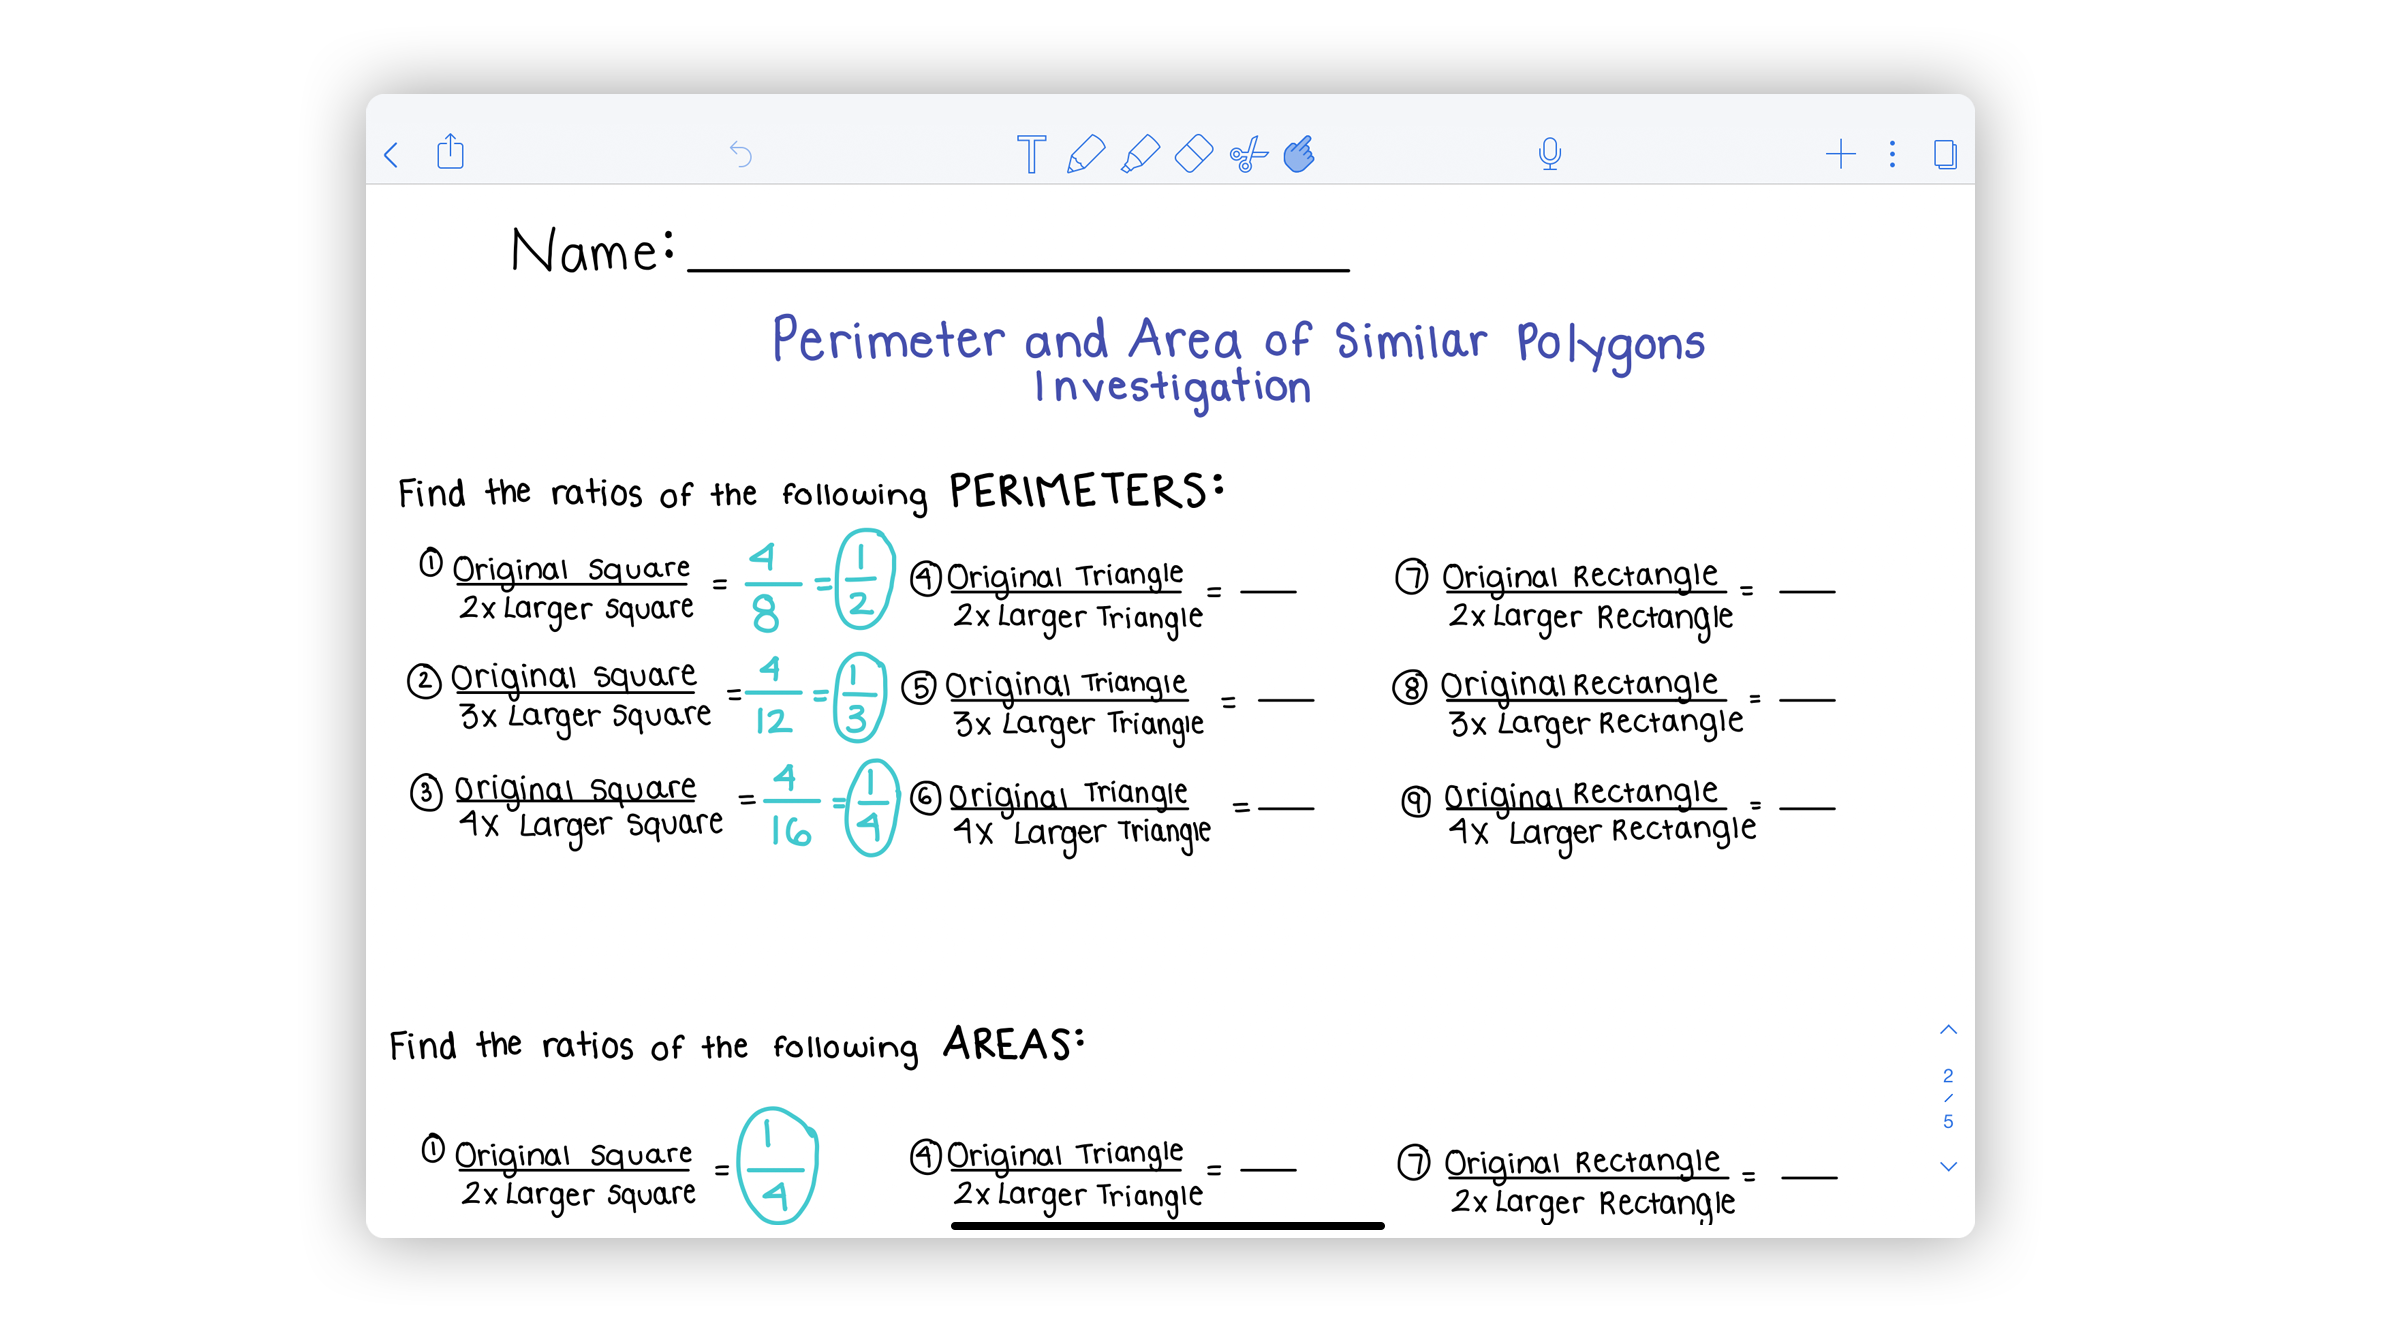 Name:
Perimeter and Area of Similar Polygons
Investigation
Find the ratios of the following PERIMETERS:
① Original Square / 2x Larger Square = 4/8 = 1/2
④ Original Triangle / 2x Larger Triangle =
⑦ Original Rectangle / 2x Larger Rectangle =
② Original Square / 3x Larger Square = 4/12 = 1/3
⑤ Original Triangle / 3x Larger Triangle =
⑧ Original Rectangle / 3x Larger Rectangle =
③ Original Square / 4x Larger Square = 4/16 = 1/4
⑥ Original Triangle / 4x Larger Triangle =
⑨ Original Rectangle / 4x Larger Rectangle =
Find the ratios of the following AREAS:
① Original Square / 2x Larger Square = 1/4
④ Original Triangle / 2x Larger Triangle =
⑦ Original Rectangle / 2x Larger Rectangle =
2 / 5